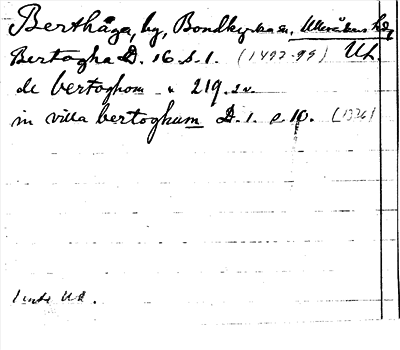 Berthåga, by, Bondkyrka sn, Ulleråkers hd,
Bertogha D. 16 s. 1. (1497-99) Upl.
de bertoghom - " 219. sv.
in villa bertoghum D. 1. s. 10. (1376)